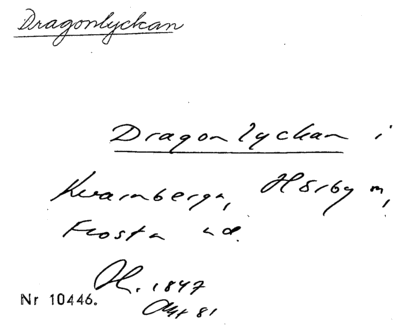 Dragonlyckan
Dragonlyckan i
Kvarnberga, Hörby m,
Frosta hd.
H. 1847
Akt 81
Nr 10446.